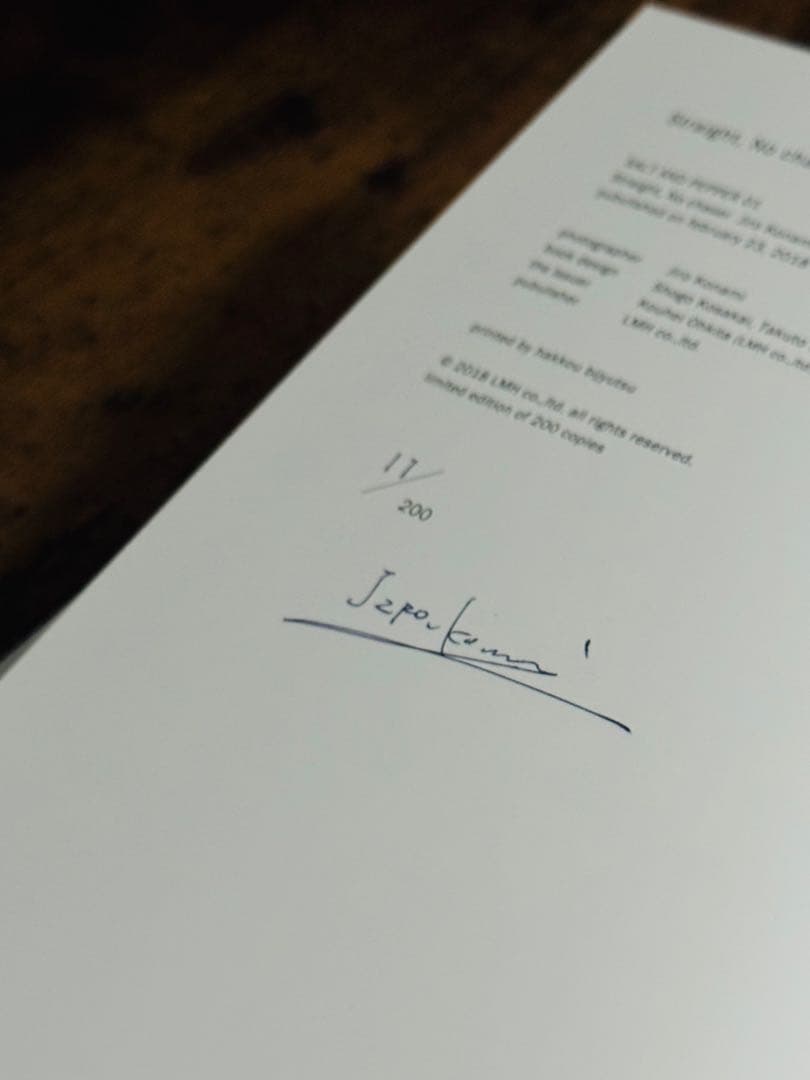 Straight, No cha
SALT AND PEPPER 01
Straight, No chaser Jiro Konami
published on february 23, 2018
photographer Jiro Konami
book design Shogo Kosakai, Takuto
Kouhei Ohkita (LMH co.,ltd
publisher LMH co.,ltd.
printed by hakkou bijyutsu
© 2018 LMH co.,ltd. all rights reserved.
limited edition of 200 copies
17/
200